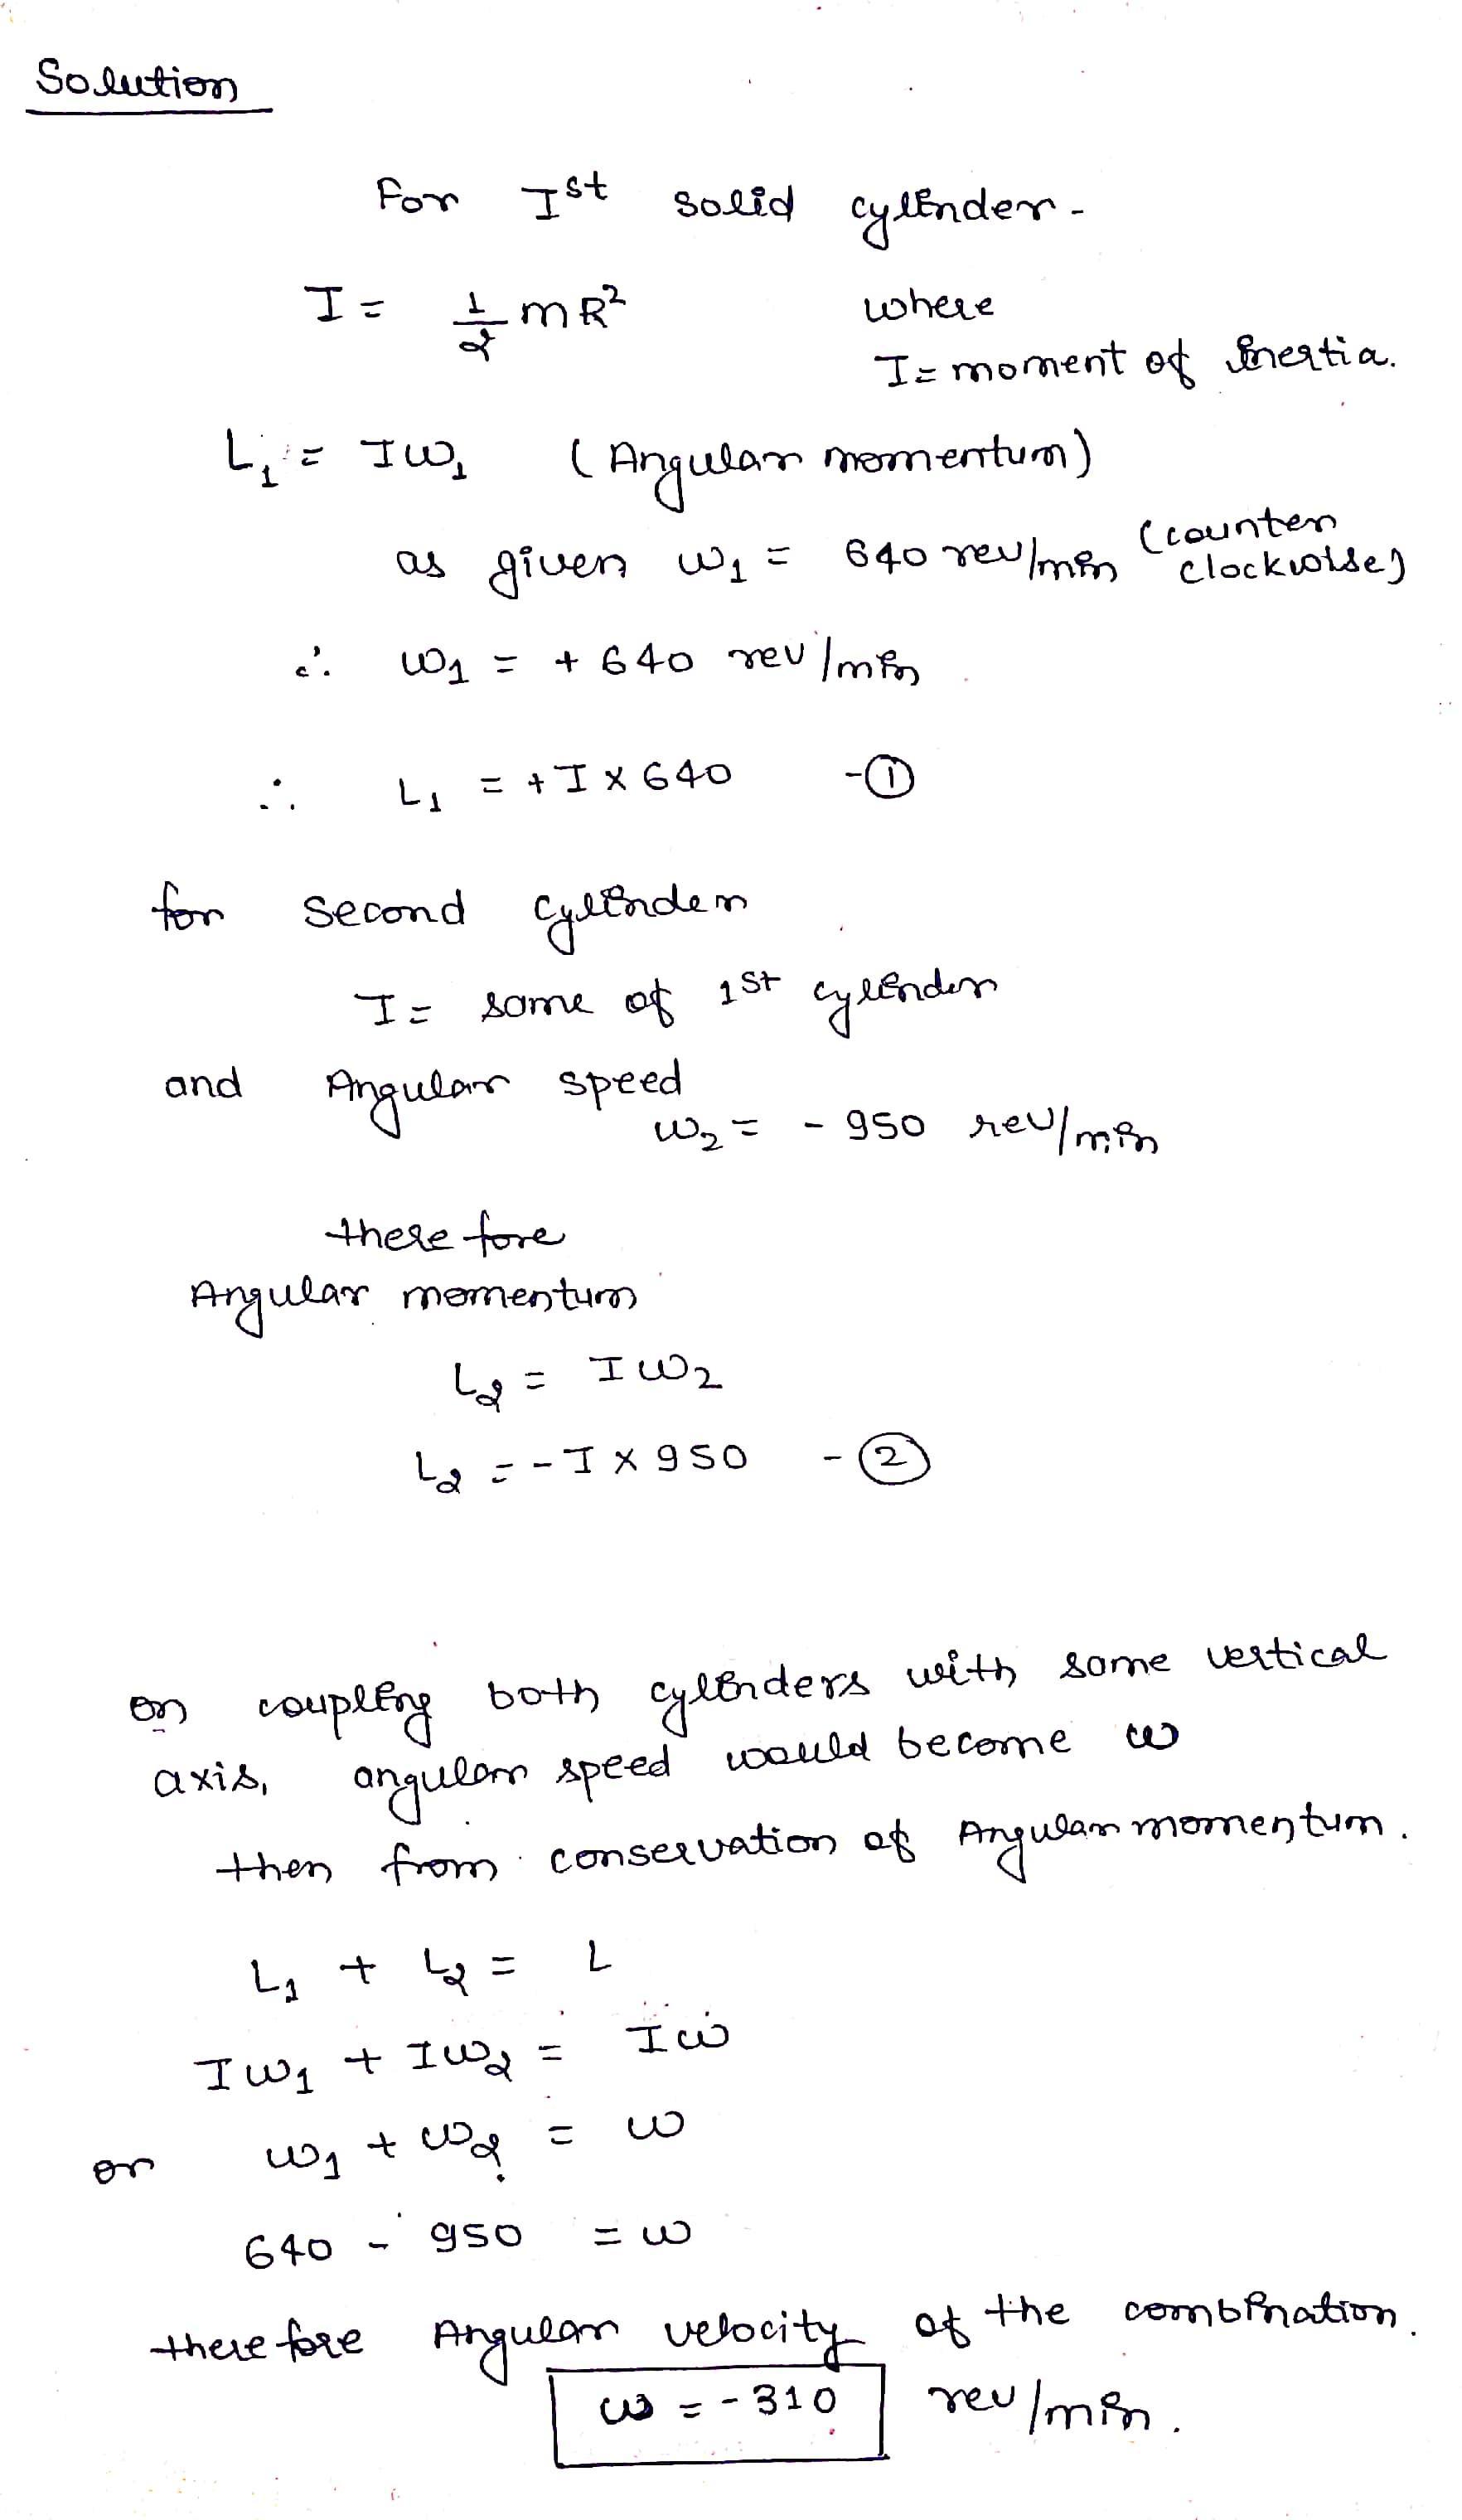 Solution
For Ist solid cylinder-
I = 1/2 mR² where
I = moment of inertia.
L₁ = Iω₁ (Angular momentum)
as given ω₁ = 640 rev/min (counter clockwise)
∴ ω₁ = + 640 rev/min
∴ L₁ = + I x 640 -①
for second cylinder
I = same of 1st cylinder
and Angular speed
ω₂ = - 950 rev/min
therefore
Angular momentum
L₂ = Iω₂
L₂ = - I x 950 -②
on coupling both cylinders with same vertical
axis, angular speed would become ω
then from conservation of Angular momentum.
L₁ + L₂ = L
Iω₁ + Iω₂ = Iω
or ω₁ + ω₂ = ω
640 - 950 = ω
therefore Angular velocity of the combination.
ω = - 310 rev/min.